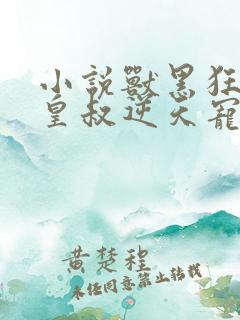 小說獸黑狂
皇叔逆天寵
黄楚程
未经同意禁止转载